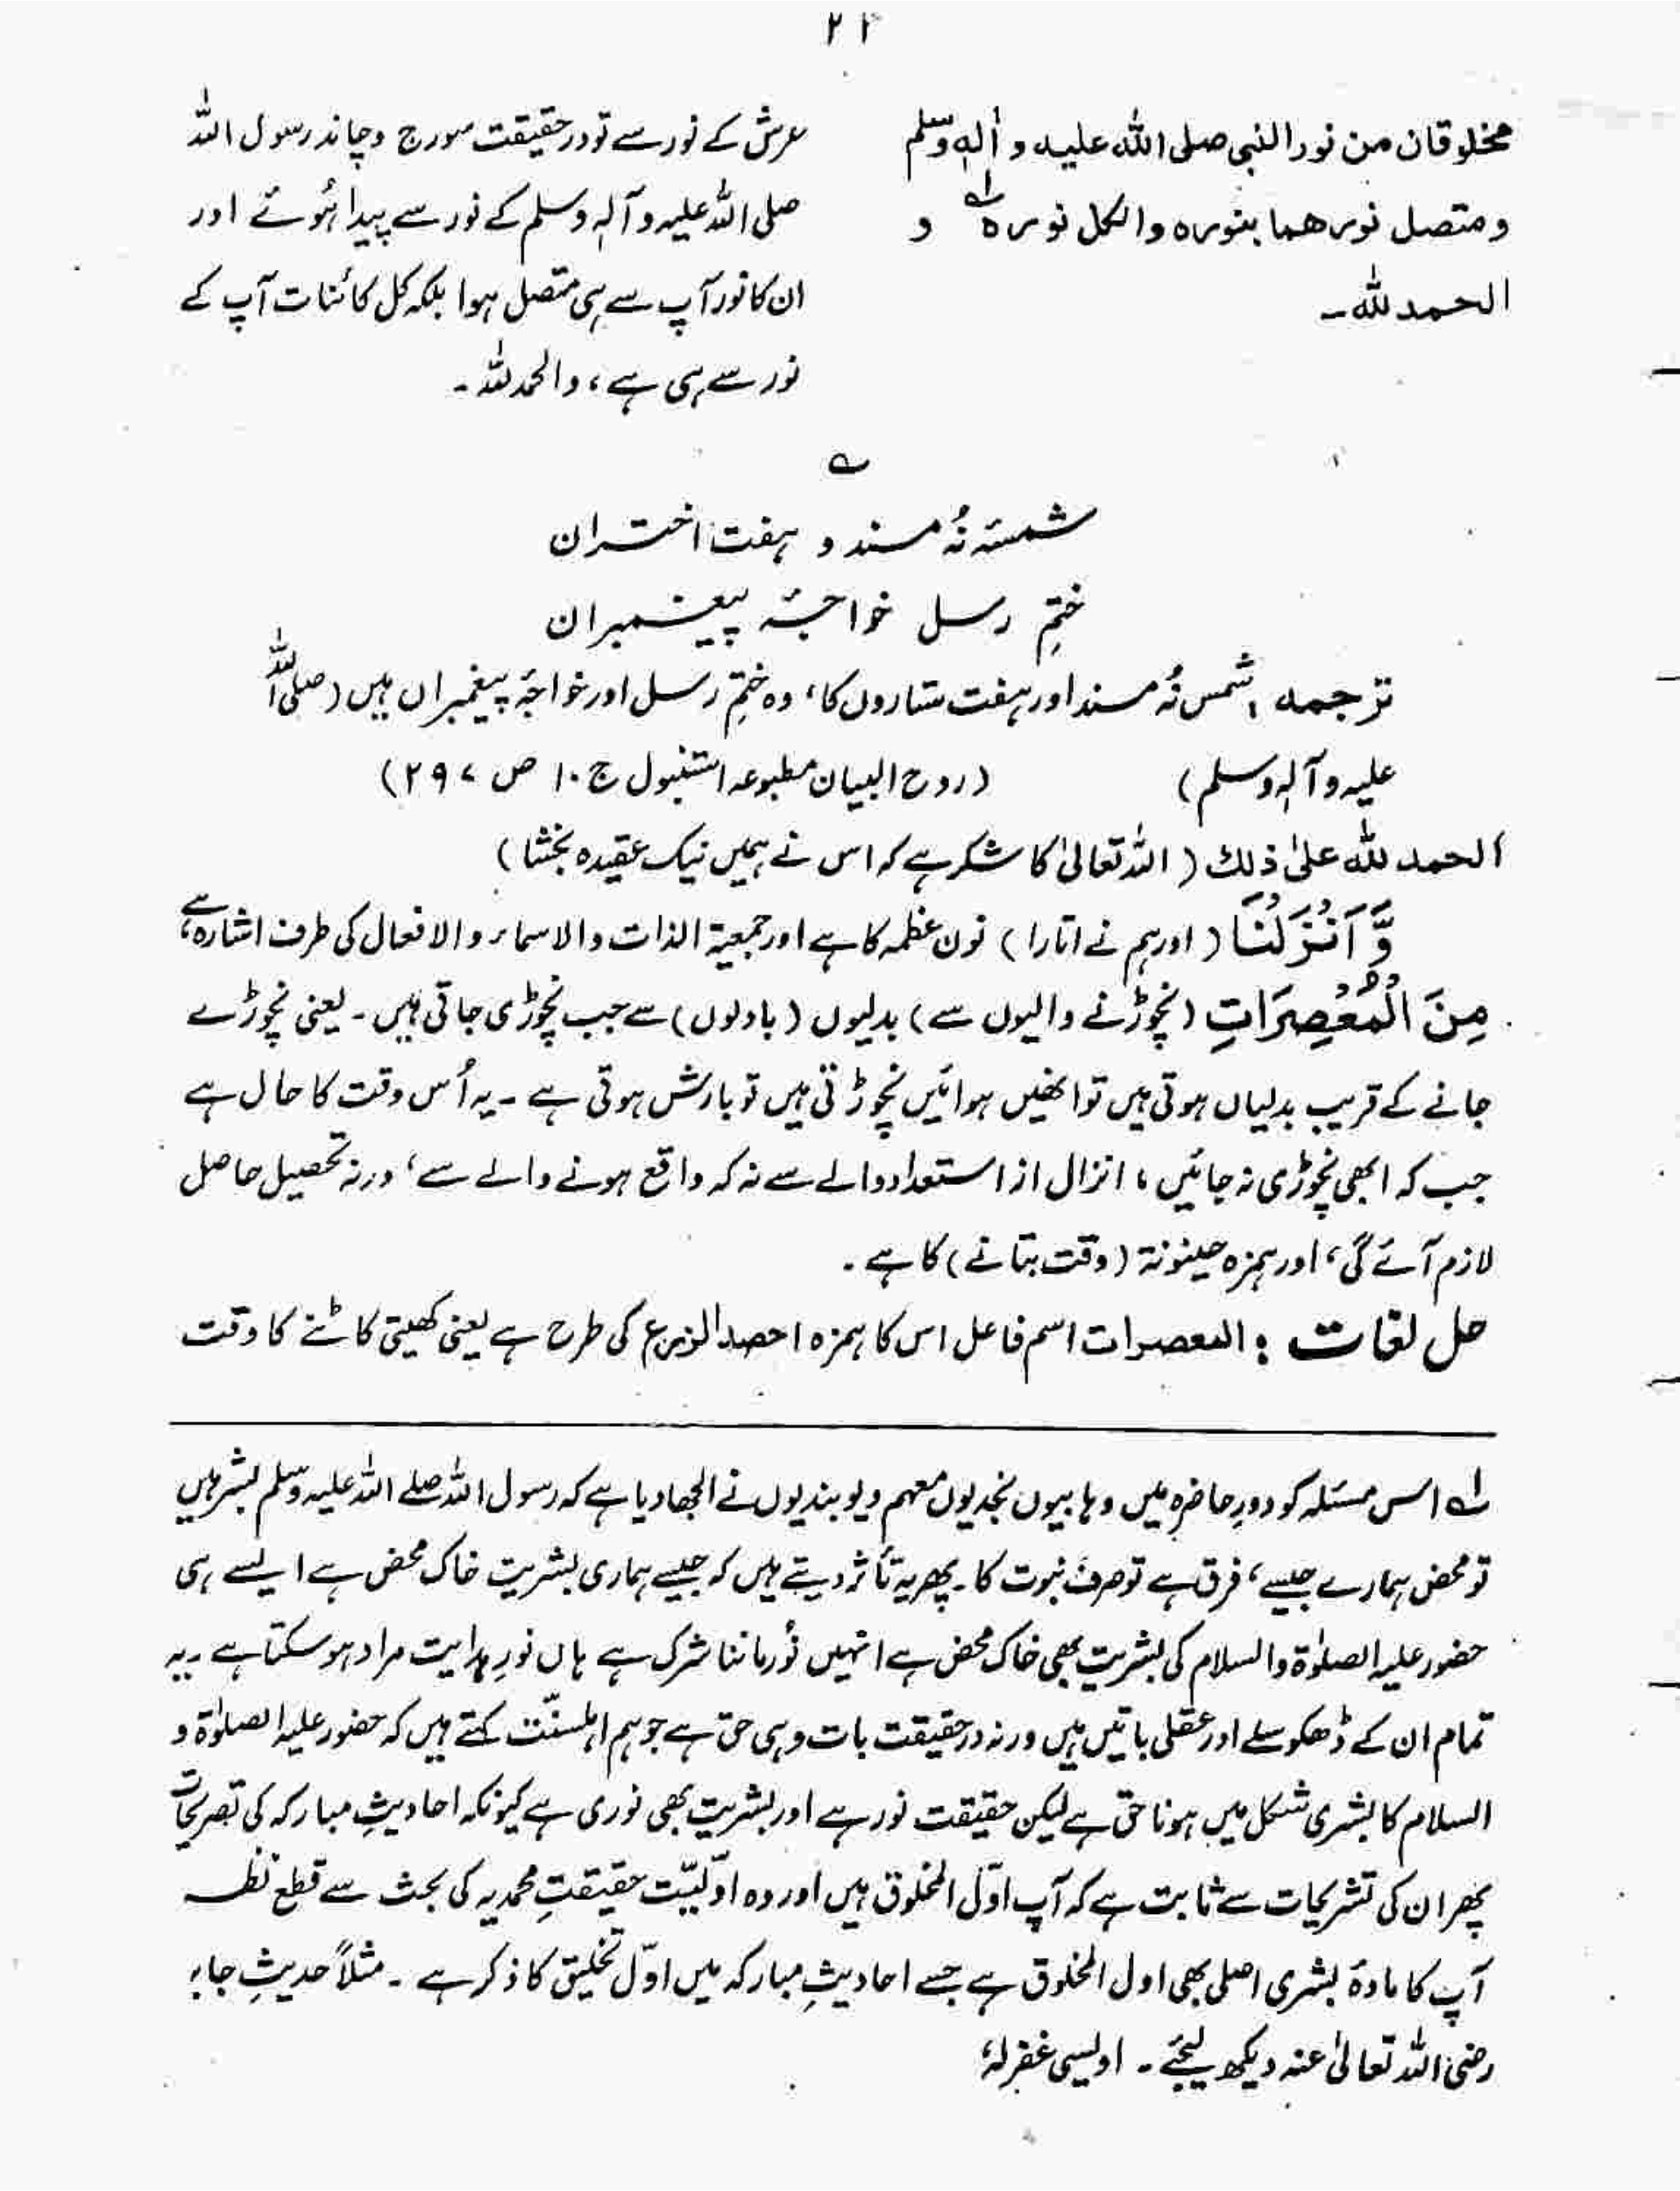 ۲۲
مخلوقان من نور النبی صلی اللہ علیہ و اٰلہٖ وسلم
و متصل نورھما بنورہ والکل نورہ ؎۱ و
الحمد للہ۔
عرش کے نور سے تو درحقیقت سورج و چاند رسول اللہ
صلی اللہ علیہ و آلہٖ وسلم کے نور سے پیدا ہُوئے اور
ان کا نور آپ سے ہی متصل ہوا بلکہ کل کائنات آپ کے
نور سے ہی ہے، والحمد للہ۔
؎
شمسۂ نُہ مسند و ہفت اختران
ختمِ رسل خواجۂ پیغمبران
ترجمہ : شمس نُہ مسند اور ہفت ستاروں کا، وہ ختمِ رسل اور خواجۂ پیغمبراں ہیں (صلی اللہ
علیہ و آلہٖ وسلم) (روح البیان مطبوعہ استنبول ج ۱۰ ص ۲۹۷)
الحمد للہ علیٰ ذٰلک ( اللہ تعالیٰ کا شکر ہے کہ اس نے ہمیں نیک عقیدہ بخشا )
وَّ اَنْزَلْنَا ( اور ہم نے اتارا ) نون عظمہ کا ہے اور جمعیۃ الذات والاسماء والافعال کی طرف اشارہ ہے،
مِنَ الْمُعْصِرَاتِ (نچوڑنے والیوں سے) بدلیوں (بادلوں) سے جب نچوڑی جاتی ہیں۔ یعنی نچوڑے
جانے کے قریب بدلیاں ہوتی ہیں تو انھیں ہوائیں نچوڑتی ہیں تو بارش ہوتی ہے۔ یہ اُس وقت کا حال ہے
جب کہ ابھی نچوڑی نہ جائیں، انزال از استعداد والے سے نہ کہ واقع ہونے والے سے، ورنہ تحصیل حاصل
لازم آئے گی، اور ہمزہ حینونۃ (وقت بتانے) کا ہے۔
حل لغات : المعصرات اسم فاعل اس کا ہمزہ احصد الزرع کی طرح ہے یعنی کھیتی کاٹنے کا وقت
؎۱ اس مسئلہ کو دورِ حاضرہ میں وہابیوں نجدیوں معہم دیوبندیوں نے الجھا دیا ہے کہ رسول اللہ صلے اللہ علیہ وسلم بشر ہیں
تو محض ہمارے جیسے، فرق ہے تو صرف نبوت کا۔ پھر یہ تأثر دیتے ہیں کہ جیسے ہماری بشریت خاک محض ہے ایسے ہی
حضور علیہ الصلوٰۃ والسلام کی بشریت بھی خاک محض ہے انہیں نُور ماننا شرک ہے ہاں نورِ ہدایت مراد ہو سکتا ہے۔ یہ
تمام ان کے ڈھکوسلے اور عقلی باتیں ہیں ورنہ درحقیقت بات وہی حق ہے جو ہم اہلسنّت کہتے ہیں کہ حضور علیہ الصلوٰۃ و
السلام کا بشری شکل میں ہونا حق ہے لیکن حقیقت نور ہے اور بشریت بھی نوری ہے کیونکہ احادیثِ مبارکہ کی تصریحات
پھر ان کی تشریحات سے ثابت ہے کہ آپ اوّل المخلوق ہیں اور وہ اوّلیّت حقیقتِ محمدیہ کی بحث سے قطع نظر
آپ کا مادۂ بشری اصلی بھی اول المخلوق ہے جسے احادیثِ مبارکہ میں اوّل تخلیق کا ذکر ہے۔ مثلاً حدیثِ جابر
رضی اللہ تعالیٰ عنہ دیکھ لیجئے۔ اویسی غفرلہٗ